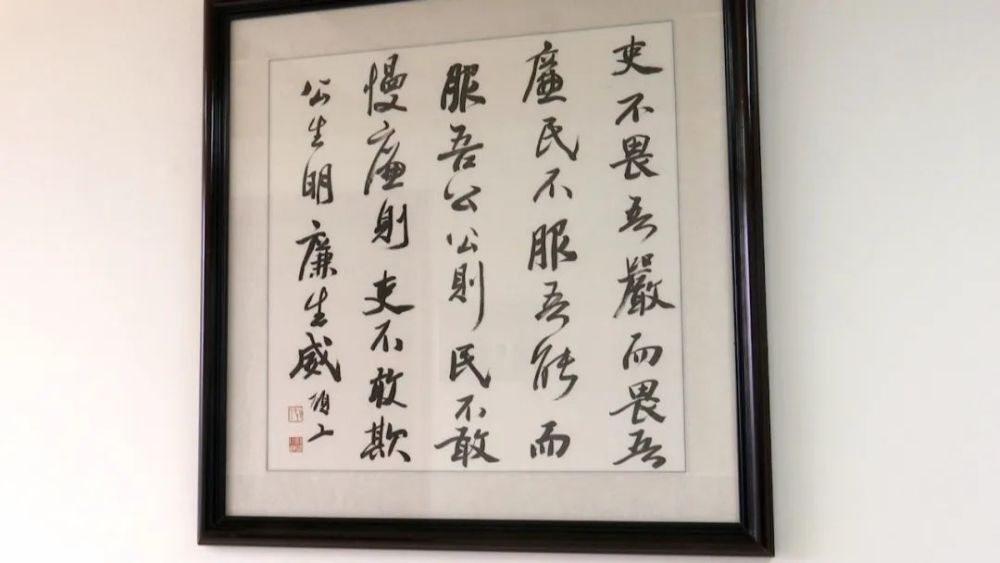 吏不畏吾嚴而畏吾
廉民不服吾能而
服吾公公則民不敢
慢廉則吏不敢欺
公生明廉生威